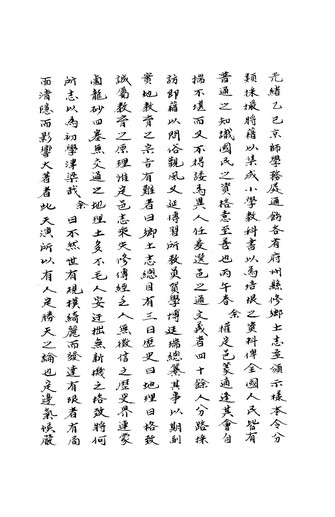 光緒乙巳京師學務處通飭各省府州縣修鄉土志並頒示樣本令分
類採擴將藉以集成小學教科書以為培根之資料俾全國人民皆有
普通之知識國民之資格意至善也丙午春余權定邑蒙適逢其會自
揣不堪而又不得諉為異人任爰選邑之通文義者四十餘人分路採
訪即藉以問俗觀風又延傳習所教員賀學博廷瑞總纂其事以期副
實地教育之宗旨有難者曰鄉土志總目有三曰歷史曰地理曰格致
誠屬教育之原理惟定邑志乘失修傳經乏人無徵信之歷史界連蒙
鹵龍砂四塞無交通之地理土多不毛人安迂拙無新機之格致將何
所志以為初學津梁哉余曰不然世有規模綺麗而發達有根者有局
面清隱而影響大著者此天演所以有人定勝天之論也定邊氣候嚴